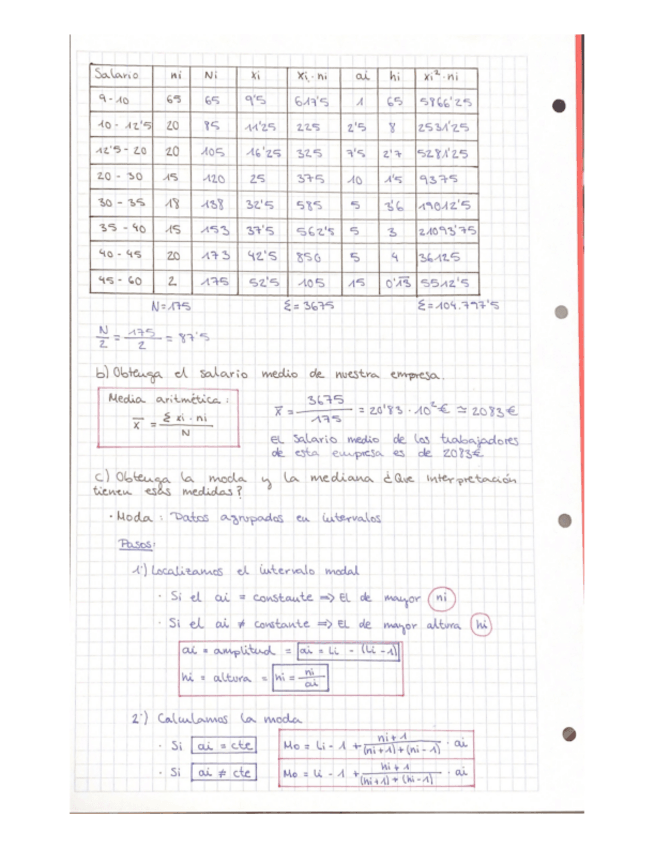 Salario ni Ni xi xi·ni ai hi xi²·ni
9-10 65 65 9'5 617'5 1 65 5866'25
10-12'5 20 85 11'25 225 2'5 8 2531'25
12'5-20 20 105 16'25 325 7'5 2'7 5281'25
20-30 15 120 25 375 10 1'5 9375
30-35 18 138 32'5 585 5 3'6 19012'5
35-40 15 153 37'5 562'5 5 3 21093'75
40-45 20 173 42'5 850 5 4 36125
45-60 2 175 52'5 105 15 0'13 5512'5
N=175 Σ=3675 Σ=104.797'5
N/2 = 175/2 = 87'5
b) Obtenga el salario medio de nuestra empresa.
Media aritmética:
x̄ = Σ xi·ni / N
x̄ = 3675/175 = 20'83·10²€ ≃ 2083€
El salario medio de los trabajadores
de esta empresa es de 2083€
c) Obtenga la moda y la mediana ¿Que interpretación
tienen esas medidas?
· Moda: Datos agrupados en intervalos
Pasos:
1º) Localizamos el intervalo modal
· Si el ai = constante => El de mayor ni
· Si el ai ≠ constante => El de mayor altura hi
ai = amplitud = ai = Li - (Li-1)
hi = altura = hi = ni/ai
2º) Calculamos la moda
· Si ai = cte Mo = Li-1 + ni+1/(ni+1)+(ni-1) · ai
· Si ai ≠ cte Mo = Li-1 + hi+1/(hi+1)+(hi-1) · ai